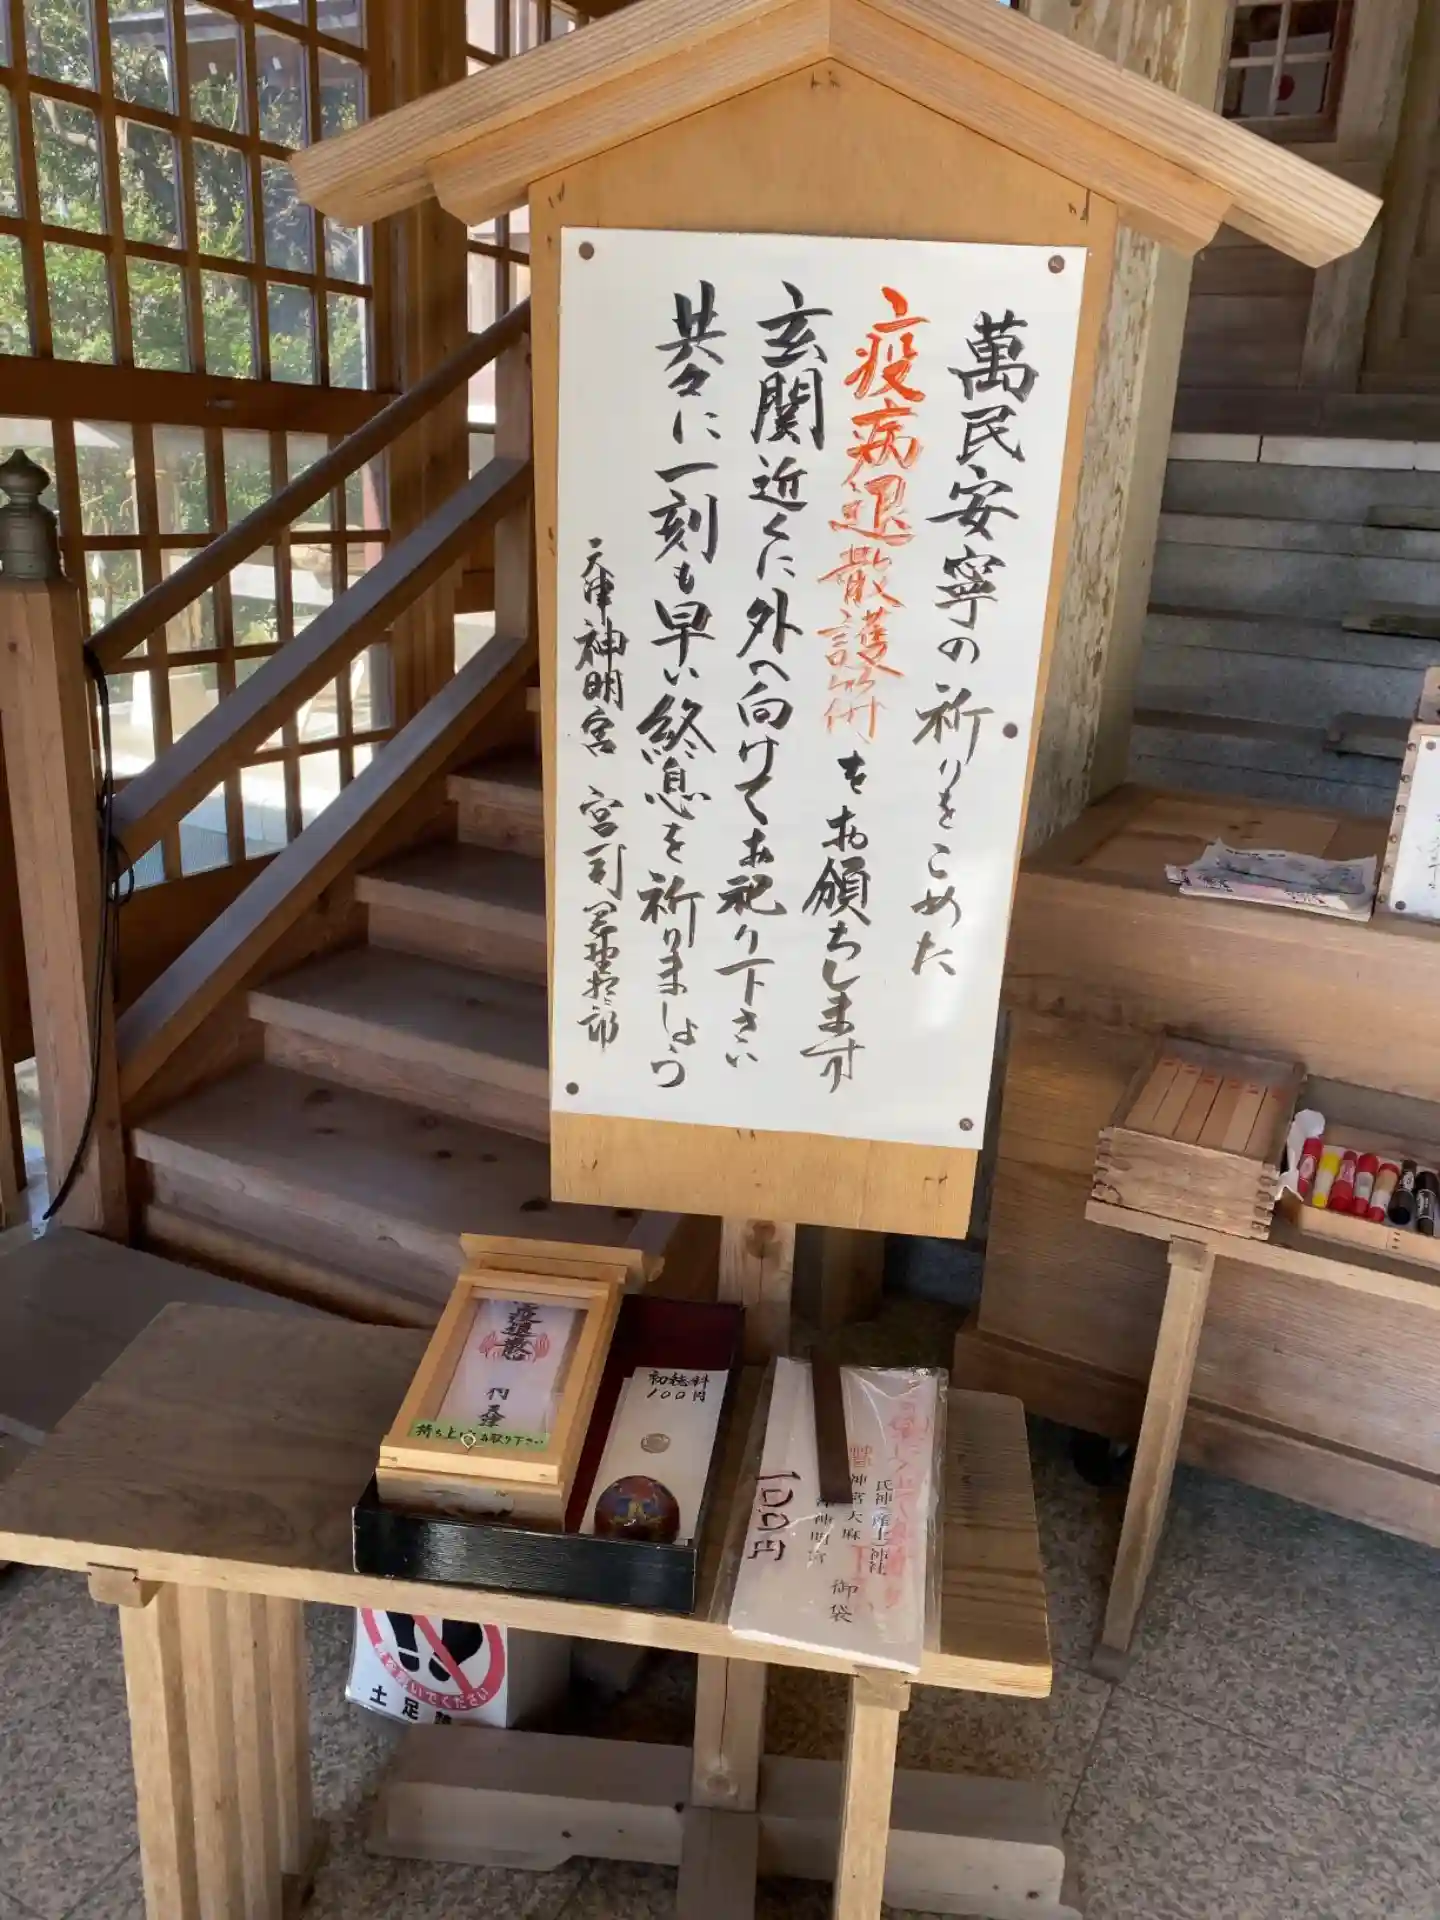 萬民安寧の祈りをこめた
疫病退散護符をお頒ちします
玄関近くに外へ向けてお祀り下さい
共々に一刻も早い終息を祈りましょう
天津神明宮 宮司
疫退散
天津
持ち上げお取り下さい
初穂料
100円
氏神(産土)神社
神宮大麻
神明宮
御袋
100円
ないでください
土足